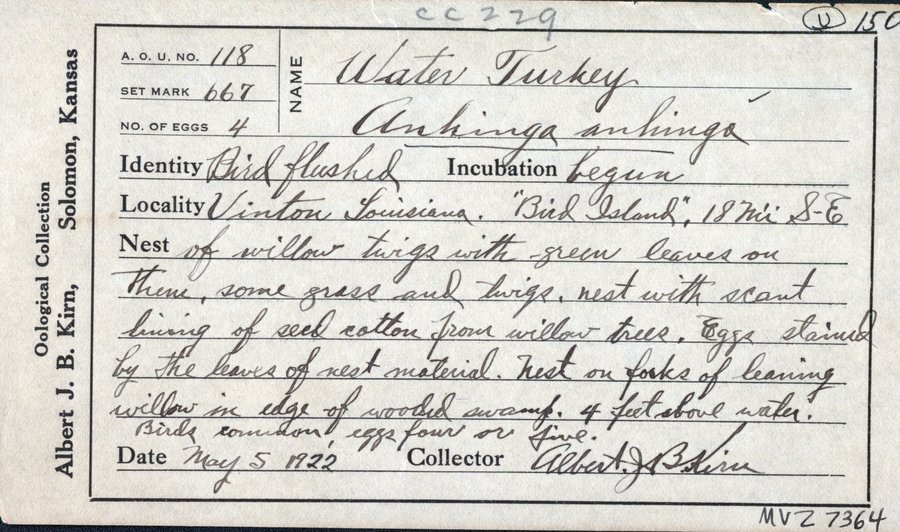 CC 229
U 150
A. O. U. NO. 118
SET MARK 667
NO. OF EGGS 4
NAME Water Turkey
Anhinga anhinga
Identity Bird flushed Incubation begun
Locality Vinton Louisiana. "Bird Island", 18 Mi S-E
Nest of willow twigs with green leaves on
them, some grass and twigs. nest with scant
lining of seed cotton from willow trees. Eggs stained
by the leaves of nest material. Nest on forks of leaning
willow in edge of wooded swamp. 4 feet above water.
Birds common, eggs four or five.
Date May 5 1922 Collector Albert J B Kirn
Oological Collection
Albert J. B. Kirn, Solomon, Kansas
MVZ 7364